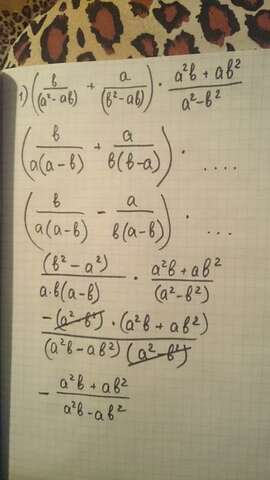 1) (b/(a²-ab) + a/(b²-ab)) · (a²b + ab²)/(a²-b²)
(b/a(a-b) + a/b(b-a)) · ....
(b/a(a-b) - a/b(a-b)) · ...
(b²-a²)/a·b(a-b) · a²b+ab²/(a²-b²)
-(a²-b²)·(a²b+ab²)/(a²b-ab²)(a²-b²)
- a²b+ab²/a²b-ab²